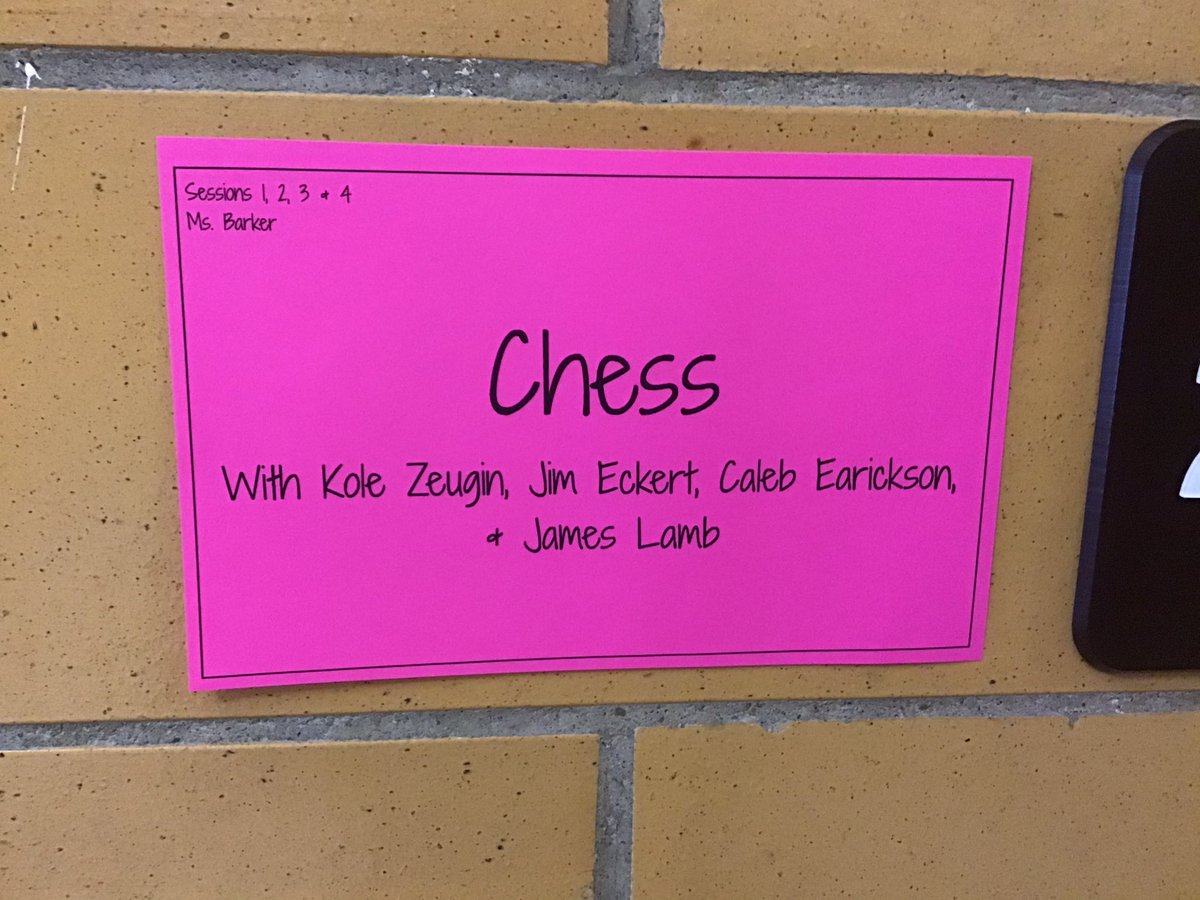 Sessions 1, 2, 3 & 4
Ms. Barker
Chess
With Kole Zeugin, Jim Eckert, Caleb Earickson,
& James Lamb